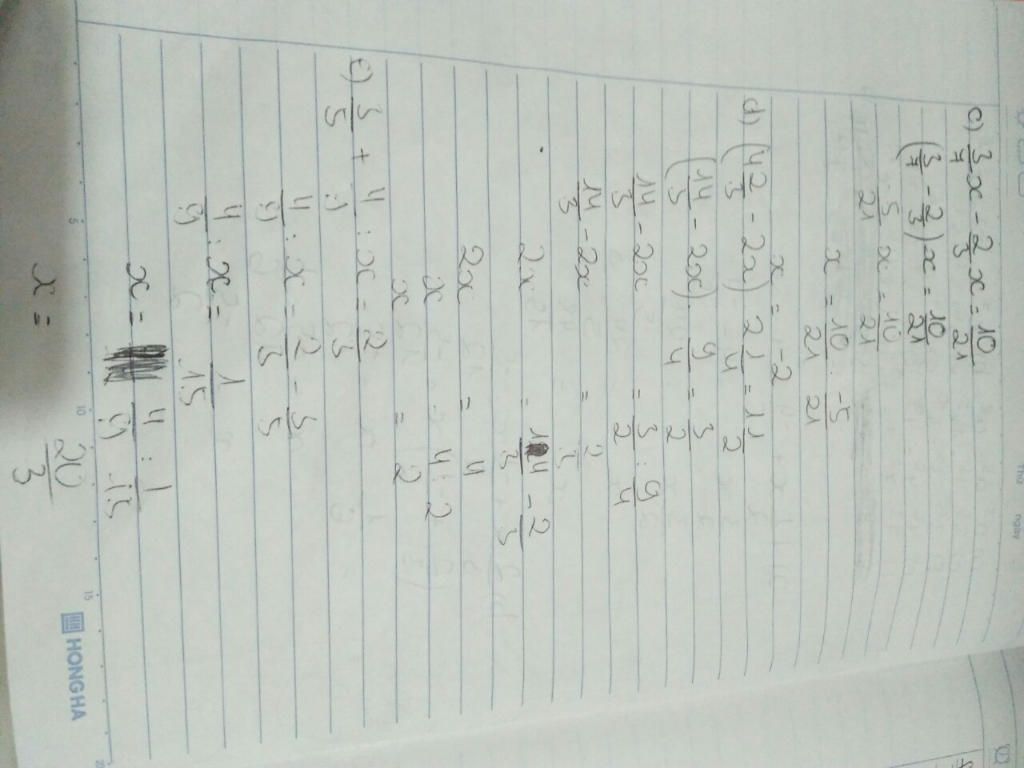 Thứ ngày
c) 3/7 x - 2/3 x = 10/21
(3/7 - 2/3) x = 10/21
-5/21 x = 10/21
x = 10/21 : -5/21
x = -2
d) (4 2/3 - 2x) 2 1/4 = 1 1/2
(14/3 - 2x) . 9/4 = 3/2
14/3 - 2x = 3/2 : 9/4
14/3 - 2x = 2/3
2x = 14/3 - 2/3
2x = 4
x = 4 - 2
x = 2
e) 3/5 + 4/9 : x = 2/3
4/9 : x = 2/3 - 3/5
4/9 : x = 1/15
x = 4/9 : 1/15
5 10 15 20
HONG HA
x = 20/3